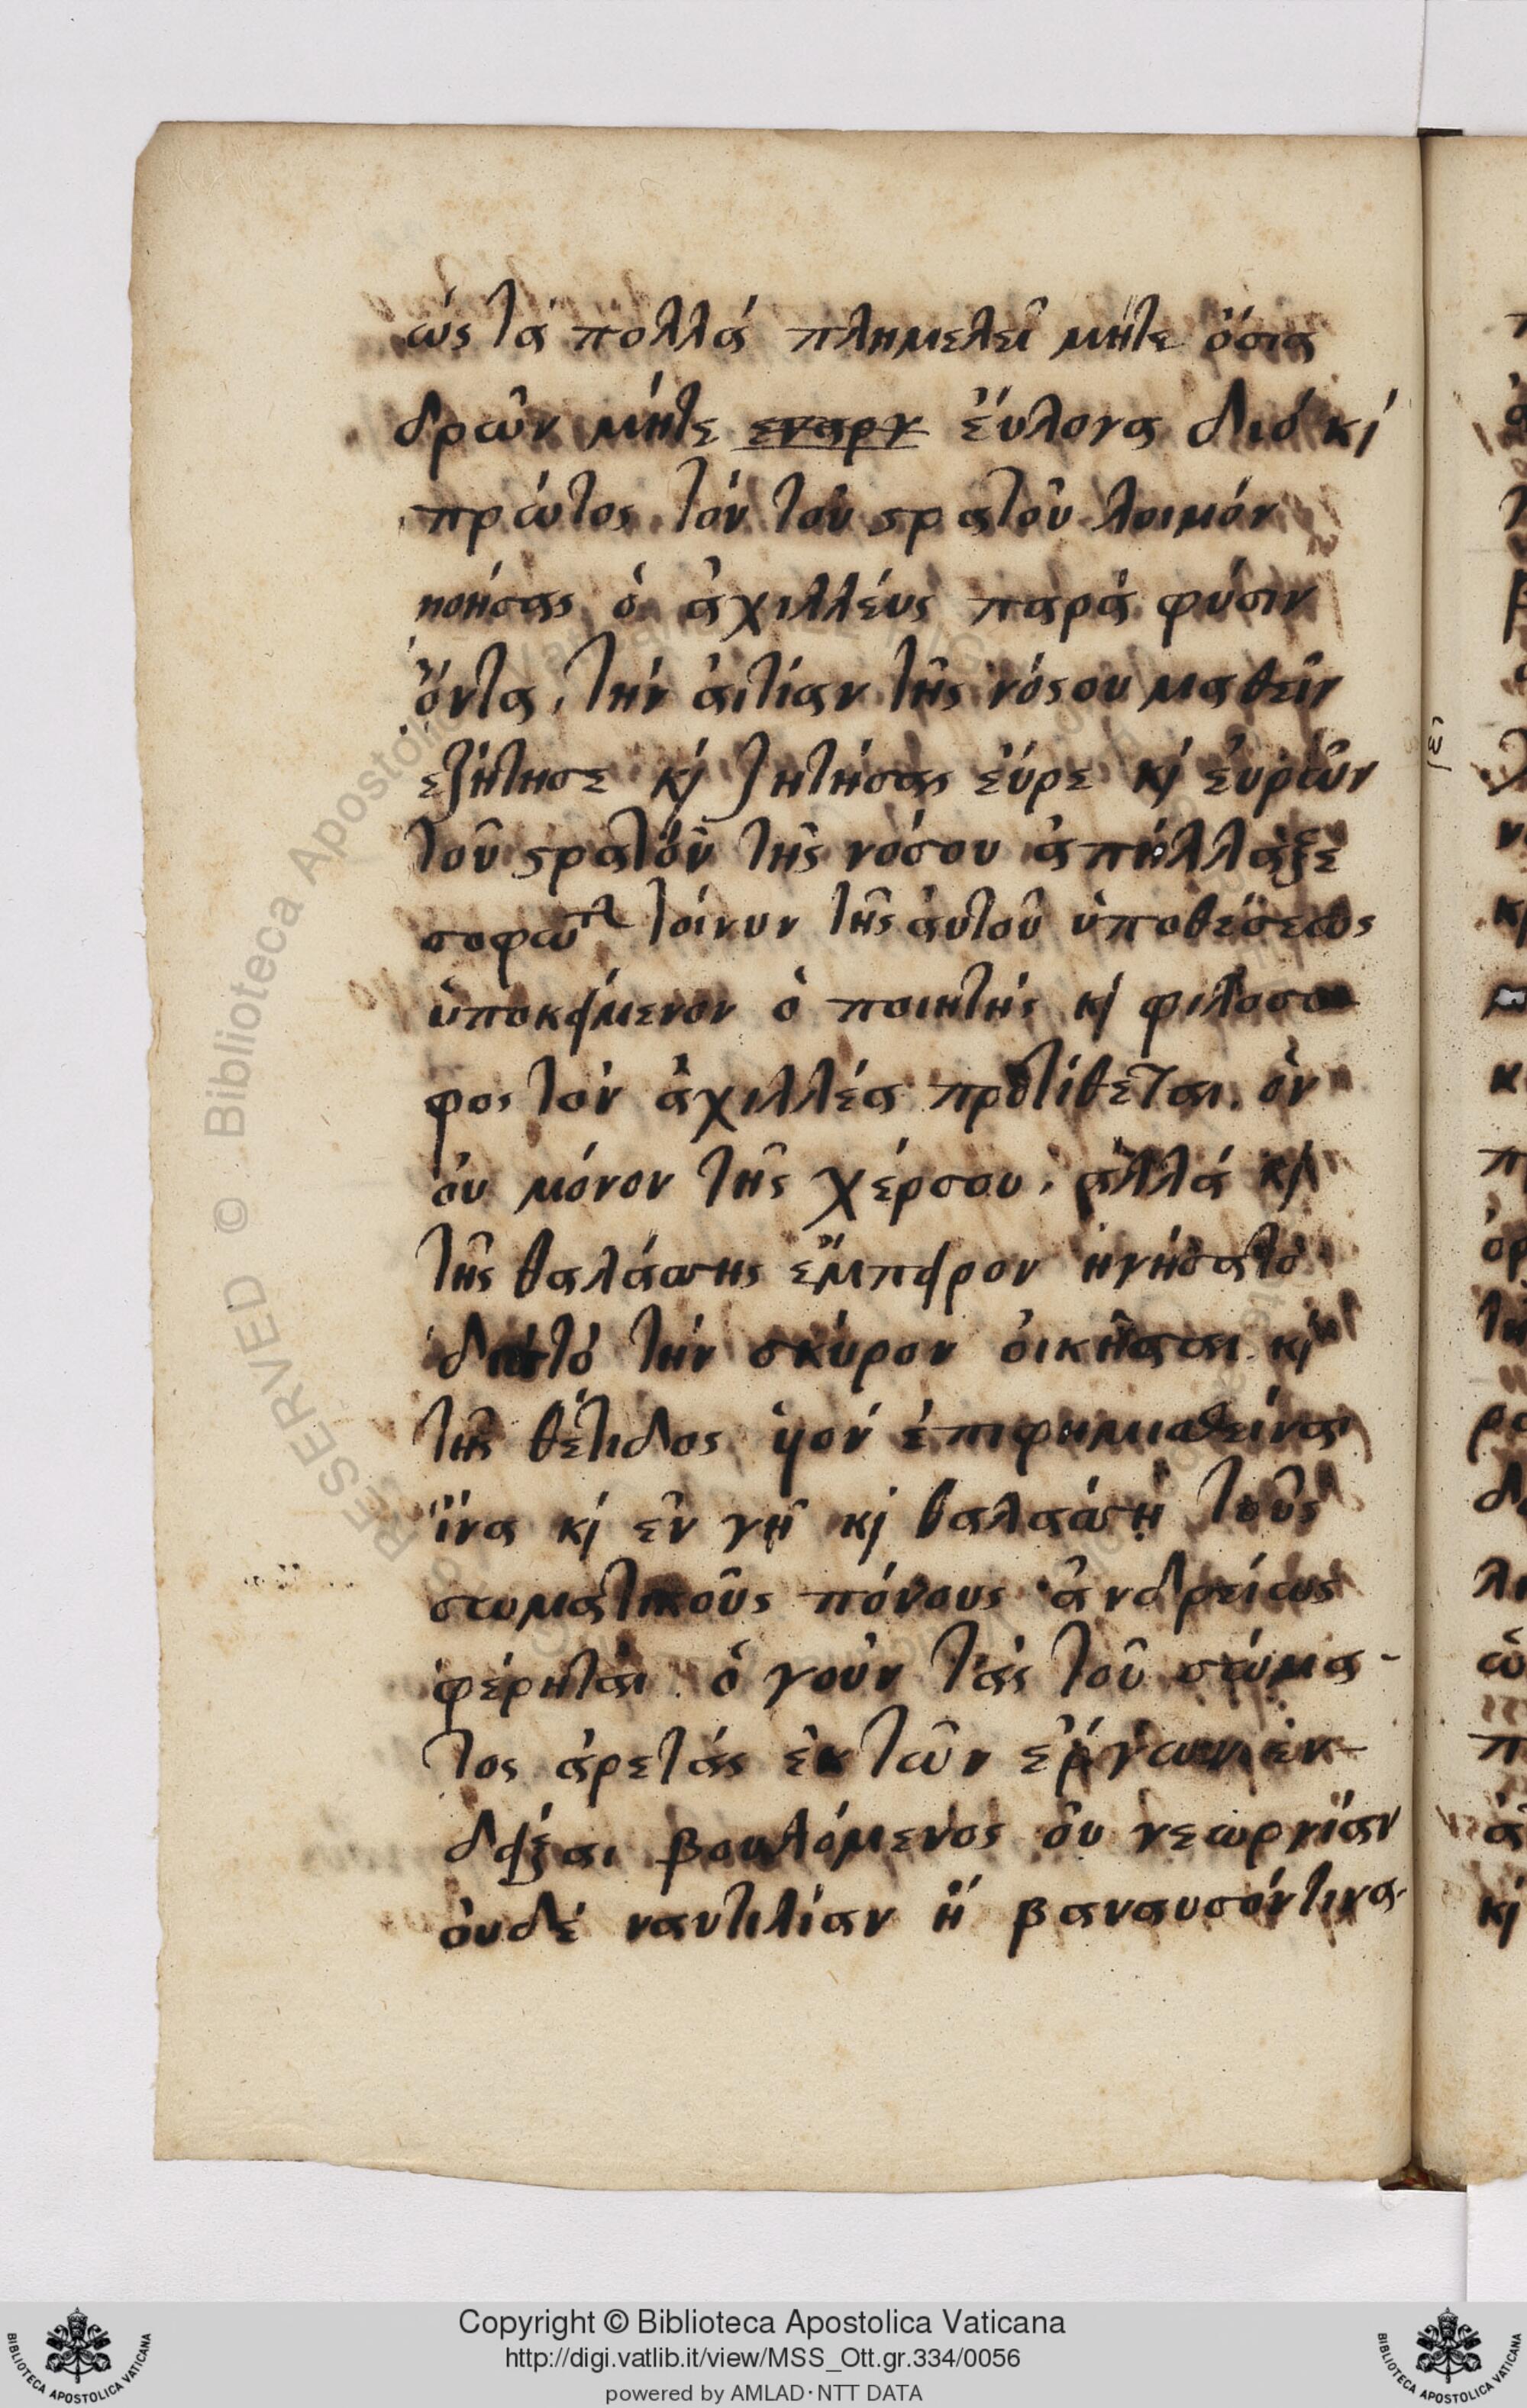 ὡς τὰ πολλὰ πλημελεῖ μήτε ὅσια
δρῶν μήτε εναργ έυλογα διό κὶ
πρῶτος τὸν τοῦ στρατοῦ λοιμόν
ποιήσας ὁ ἀχιλλέυς παρὰ φύσιν
ὄντα, τὴν ἀιτίαν τῆς νόσου μαθεῖν
εζήτησε κὶ ζητήσας έυρε κὶ ἑυρῶν
τοῦ στρατὸν τῆς νόσου ἀπήλλαξε
τοίνυν τῆς ἀυτοῦ ὑποθέσεως
ὑποκείμενον ὁ ποιητής κὶ φιλοσο
φος τὸν ἀχιλλέα προτίθεται. ὃν
ὀυ μόνον τῆς χέρσου, ἀλλὰ κὶ
τῆς θαλάσσης ἔμπειρον ἡγήσατο
τὴν σκύρον ὀικῆσαι κὶ
τῆς θέτιδος ὑιόν ἐπιφημισθεῖναι
ἵνα κὶ εν γῆ κὶ θαλαάσσῃ τοῦς
σωματικοῦς πόνους ἀνδρείως
φέρηται. ὁ γοῦν τὰς τοῦ σώμα-
τος ἀρετὰς ἐκ τῶν ἔργων ἐν-
δεῖξαι βουλόμενος ὀυ γεωργίαν
ὀυδέ ναυτιλίαν ἤ βαναυσόντινα
Copyright © Biblioteca Apostolica Vaticana
http://digi.vatlib.it/view/MSS_Ott.gr.334/0056
powered by AMLAD·NTT DATA
BIBLIOTECA APOSTOLICA VATICANA
BIBLIOTECA APOSTOLICA VATICANA